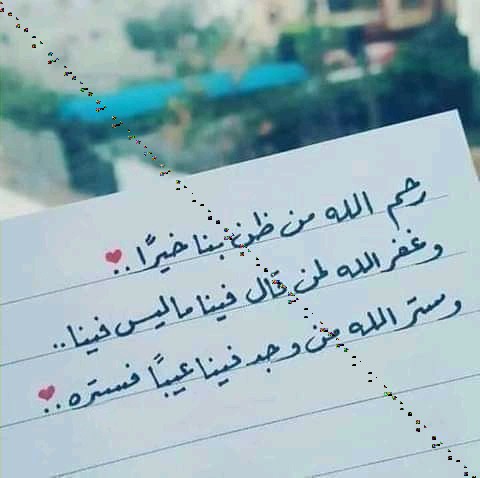 رحم الله من ظن بنا خيرًا ..
وغفر الله لمن قال فينا ما ليس فينا ..
وستر الله من وجد فينا عيبًا فستره ..